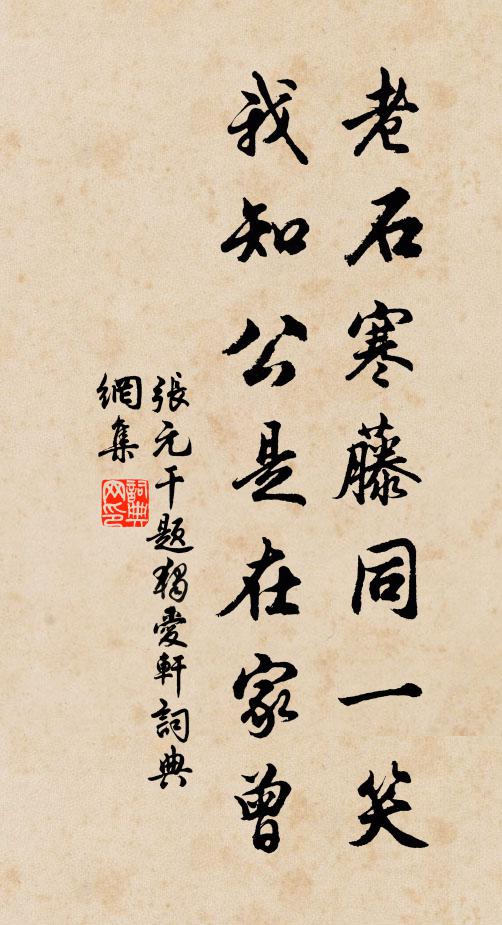 老石寒藤同一笑
我知公是在家曾
張元干題獨愛軒詞典
網集
詞典網印